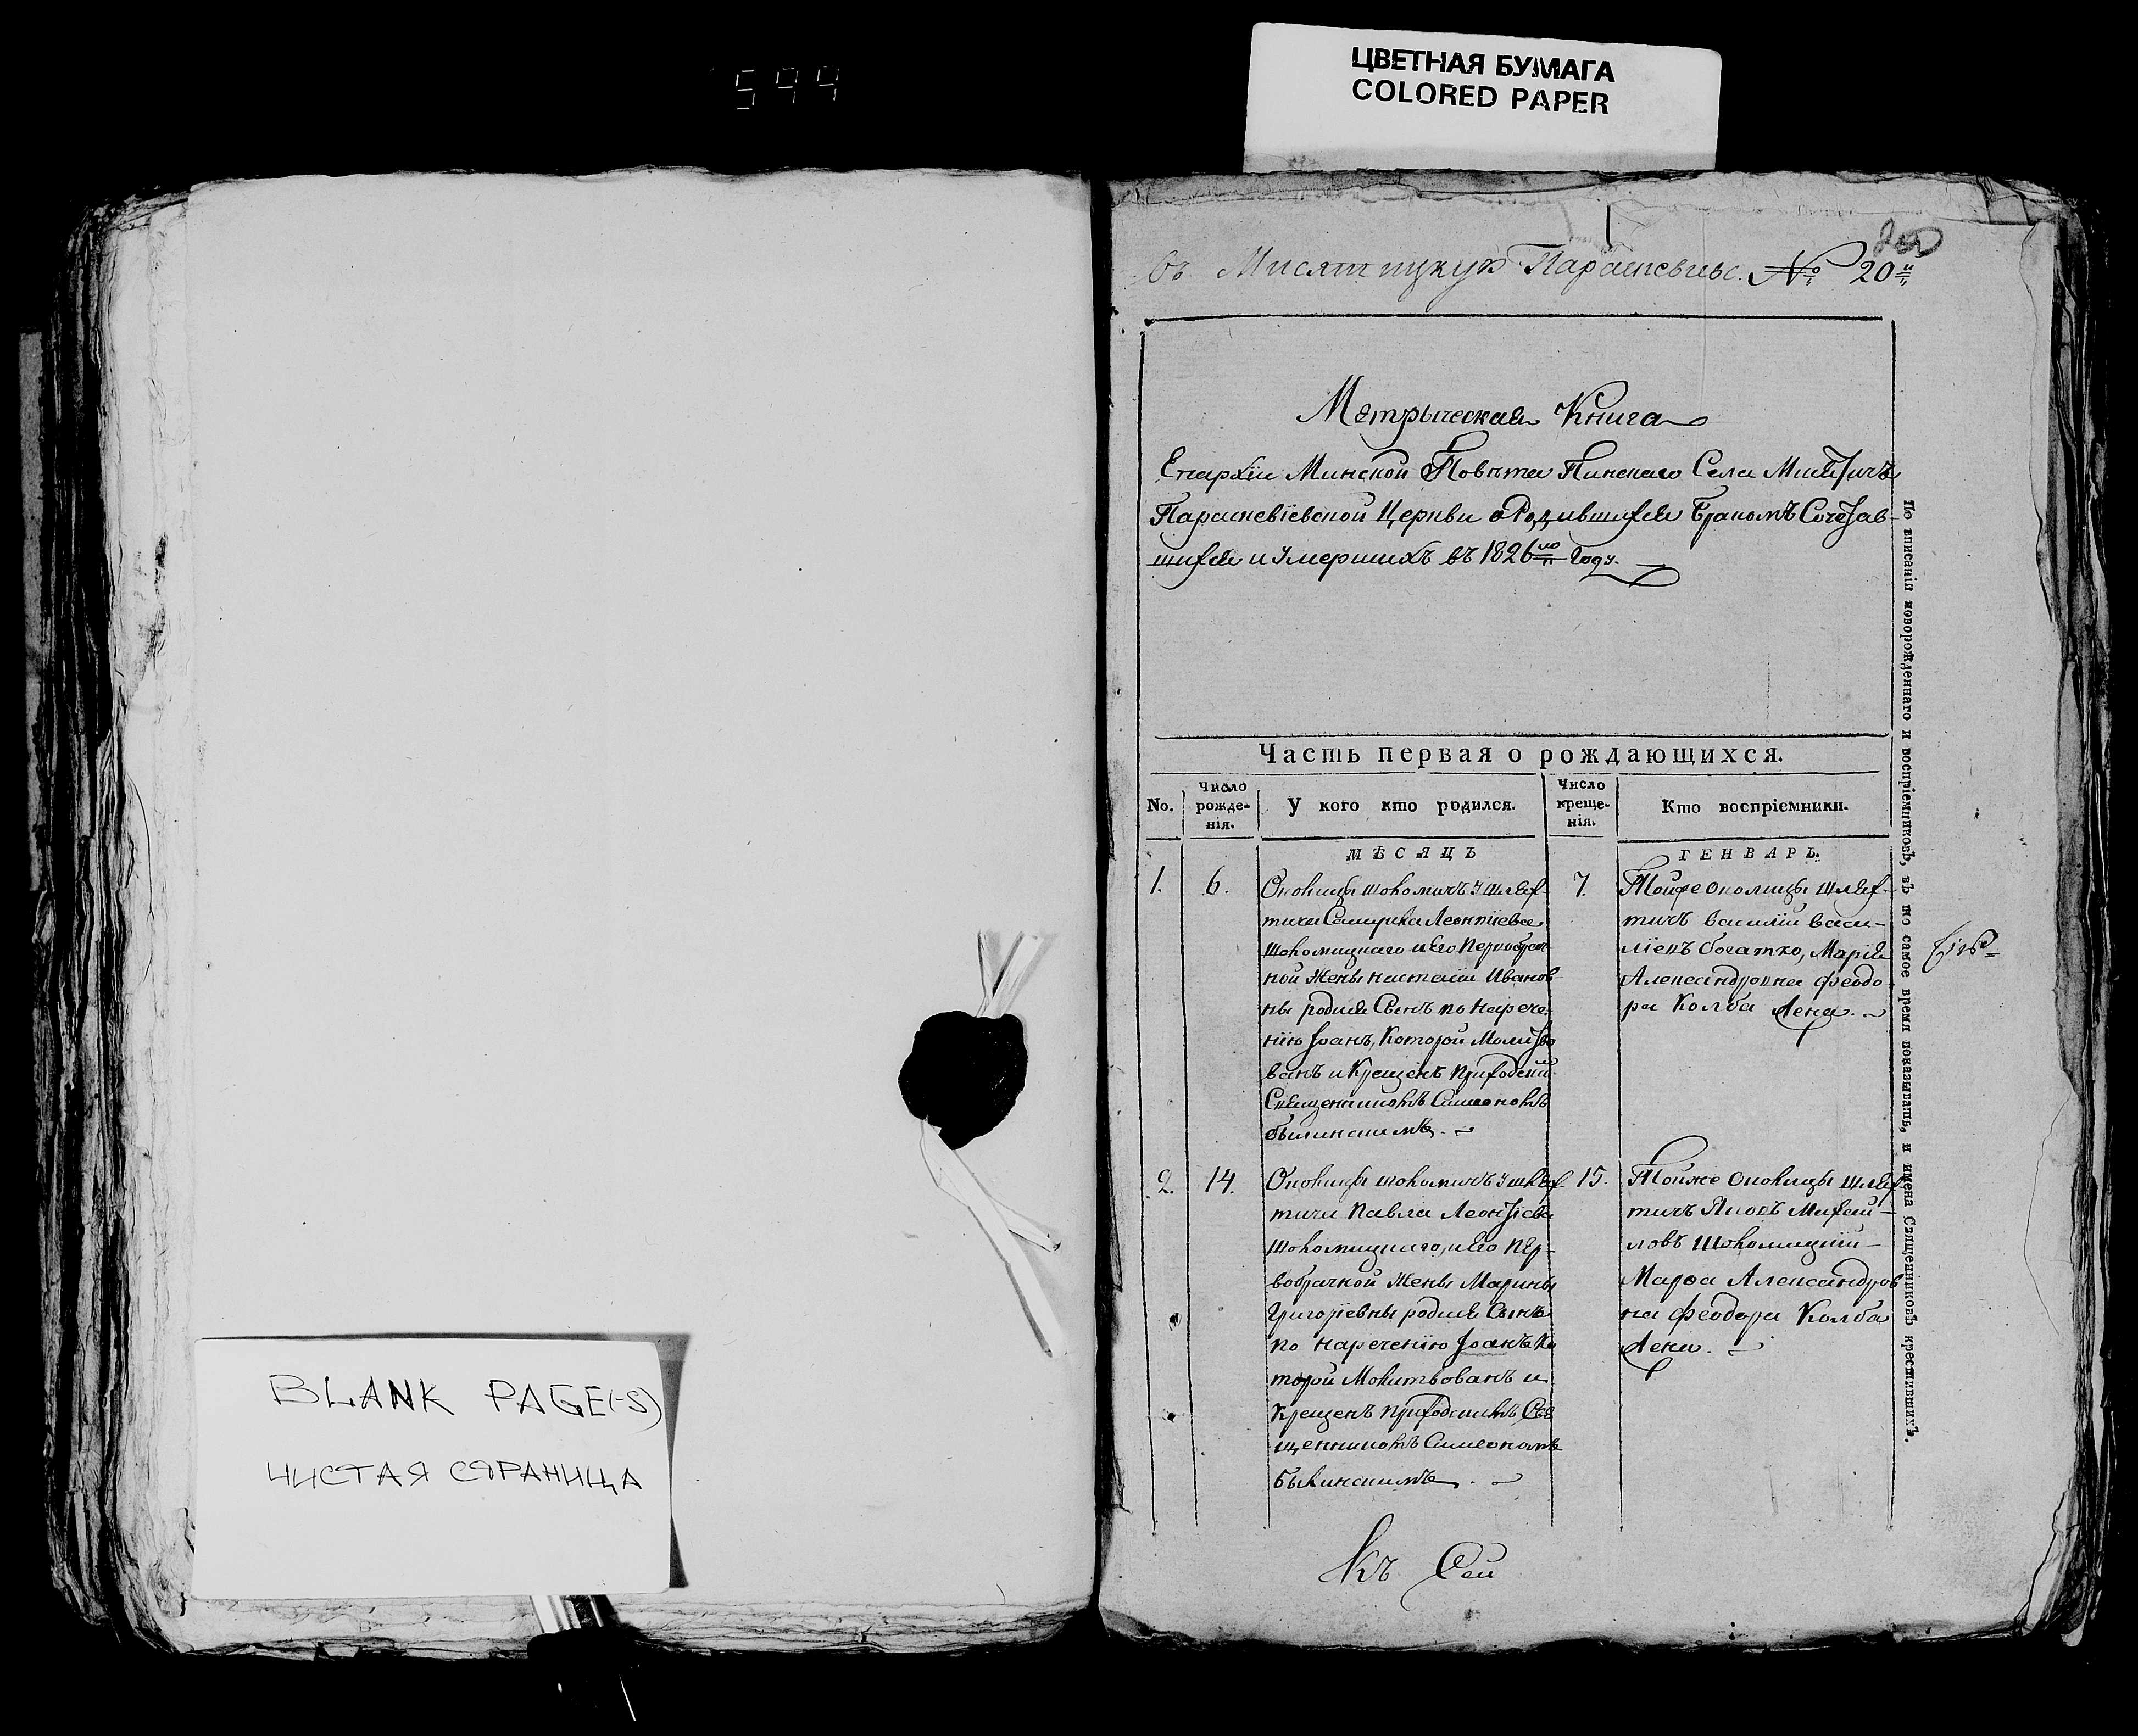 544
ЦВЕТНАЯ БУМАГА
COLORED PAPER
въ Парасковіевс. № 20й
Метрыческая Книга
Епархіи Минской Повѣта Пинскаго Села Мисятичъ
Параскевіевской Церкви о Родившихся Бракомъ Сочетав-
шихся и Умершихъ въ 1826го Году.
Часть первая о рождающихся.
No.
Число рожде-нія.
У кого кто родился.
Число креще-нія.
Кто воспріемники.
МѢСЯЦЪ
ГЕНВАРЬ.
1.
6.
Околицы Шоломичъ у Шлях-
тича Леонтіева
Шоломицкаго и Его Первобрач-
ной Жены Настасіи Иванов
ны родися Сынъ по Нарече-
нію Іоанъ, Которой Молитво
ванъ и Крещенъ Приходскимъ
Священникомъ Симеономъ
Былинскимъ.
7.
Тойже Околицы Шлях-
тичъ Василій Васи-
ліевъ Богатко, Марія
Александровна Феодо
ра Колба Жена.
2.
14.
Околицы Шоломичъ у Шлях-
тича Павла Леонтіева
Шоломицкаго, и Его Пер-
вобрачной Жены Марины
Григоріевны родися Сынъ
по Наречению Іоанъ Ко
торой Молитвованъ и
Крещенъ Приходскимъ Свя
щенникомъ Симеономъ
Былинскимъ.
15.
Тойже Околицы Шлях
тичъ Яковъ Михай-
ловъ Шоломицкій
Марѳа Александров
на Феодора Колба
Жена.
По вписаніи новорожденнаго и воспріемниковъ, въ то самое время показывать, и имена Священниковъ крестившихъ.
Къ Сей
BLANK PAGE(-S)
ЧИСТАЯ СТРАНИЦА